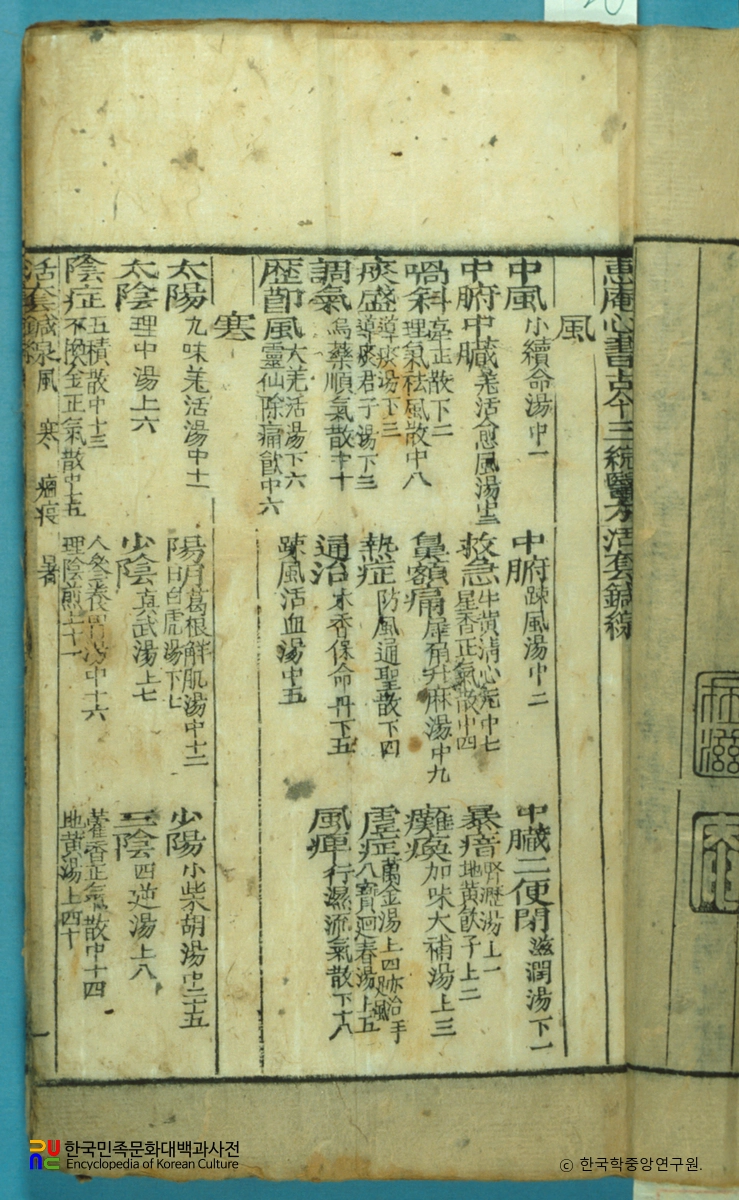 惠庵心書古今三統醫方活套鍼線
風
中風 小續命湯中一
中腑 疎風湯中二
中臟二便閉 滋潤湯下一
中腑中臟 羌活愈風湯中三
救急 牛黃淸心元中七 星香正氣散中四
暴瘖 腎瀝湯上一 地黃飮子上二
喎斜 牽正散下二 理氣祛風散中八
鼻額痛 犀角升麻湯中九
癱瘓 加味大補湯上三
痰盛 導痰湯下三 導痰君子湯下三
熱症 防風通聖散下四
虛症 萬金湯上四 亦治手足風 八寶廻春湯上五
調氣 烏藥順氣散中十
通治 木香保命丹下五
風痺 行濕流氣散下十八
歷節風 大羌活湯下六 靈仙除痛飮中六
疎風活血湯中五
寒
太陽 九味羌活湯中十一
陽明 葛根解肌湯中十二 白虎湯下七
少陽 小柴胡湯中二十五
太陰 理中湯上六
少陰 眞武湯上七
三陰 四逆湯上八
陰症 五積散中十三 不換金正氣散中十五
人參養胃湯中十六 理陰煎上十一
藿香正氣散中十四 地黃湯上四十
活套鍼線 風 寒 暑
一
한국민족문화대백과사전
Encyclopedia of Korean Culture
© 한국학중앙연구원.